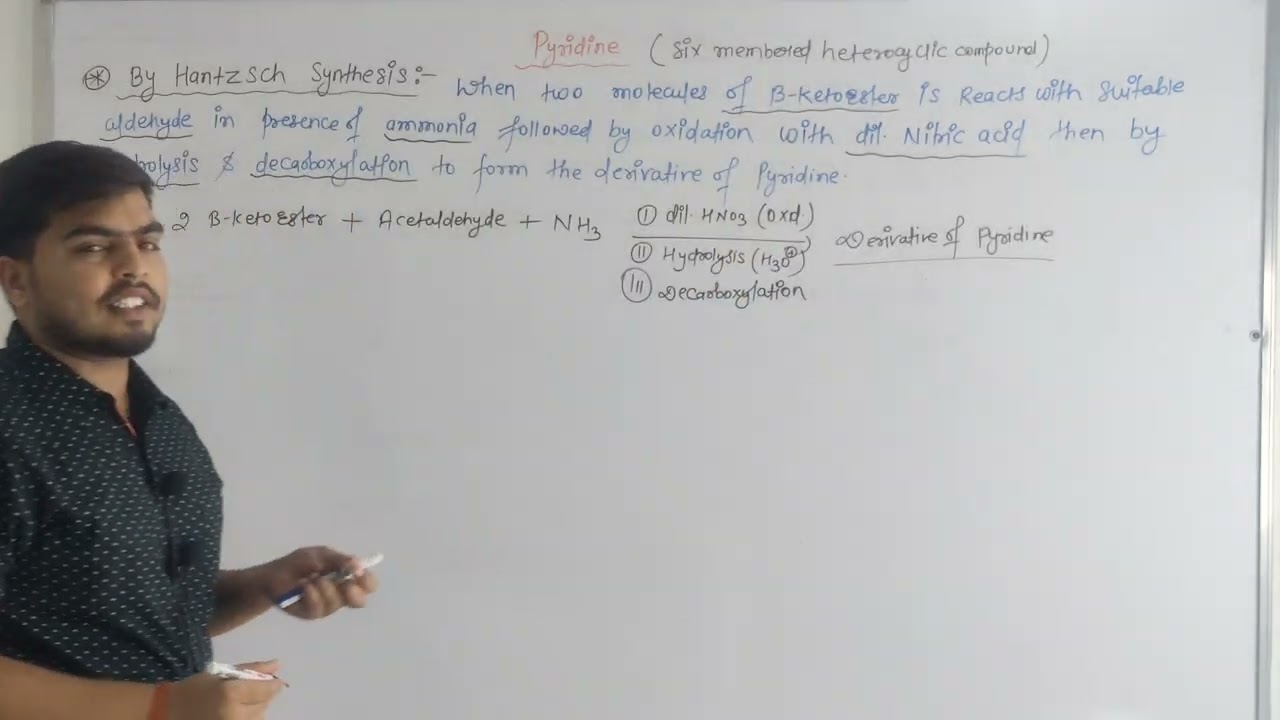 Pyridine (Six membered heterocyclic compound)
* By Hantzsch Synthesis:- When two molecules of B-ketoester is Reacts with Suitable
aldehyde in presence of ammonia followed by oxidation with dil. Nitric acid then by
olysis & decarboxylation to form the derivative of Pyridine.
2 B-ketoester + Acetaldehyde + NH3 (I) dil. HNO3 (Oxd.) Derivative of Pyridine
(II) Hydrolysis (H3O⊕)
(III) Decarboxylation